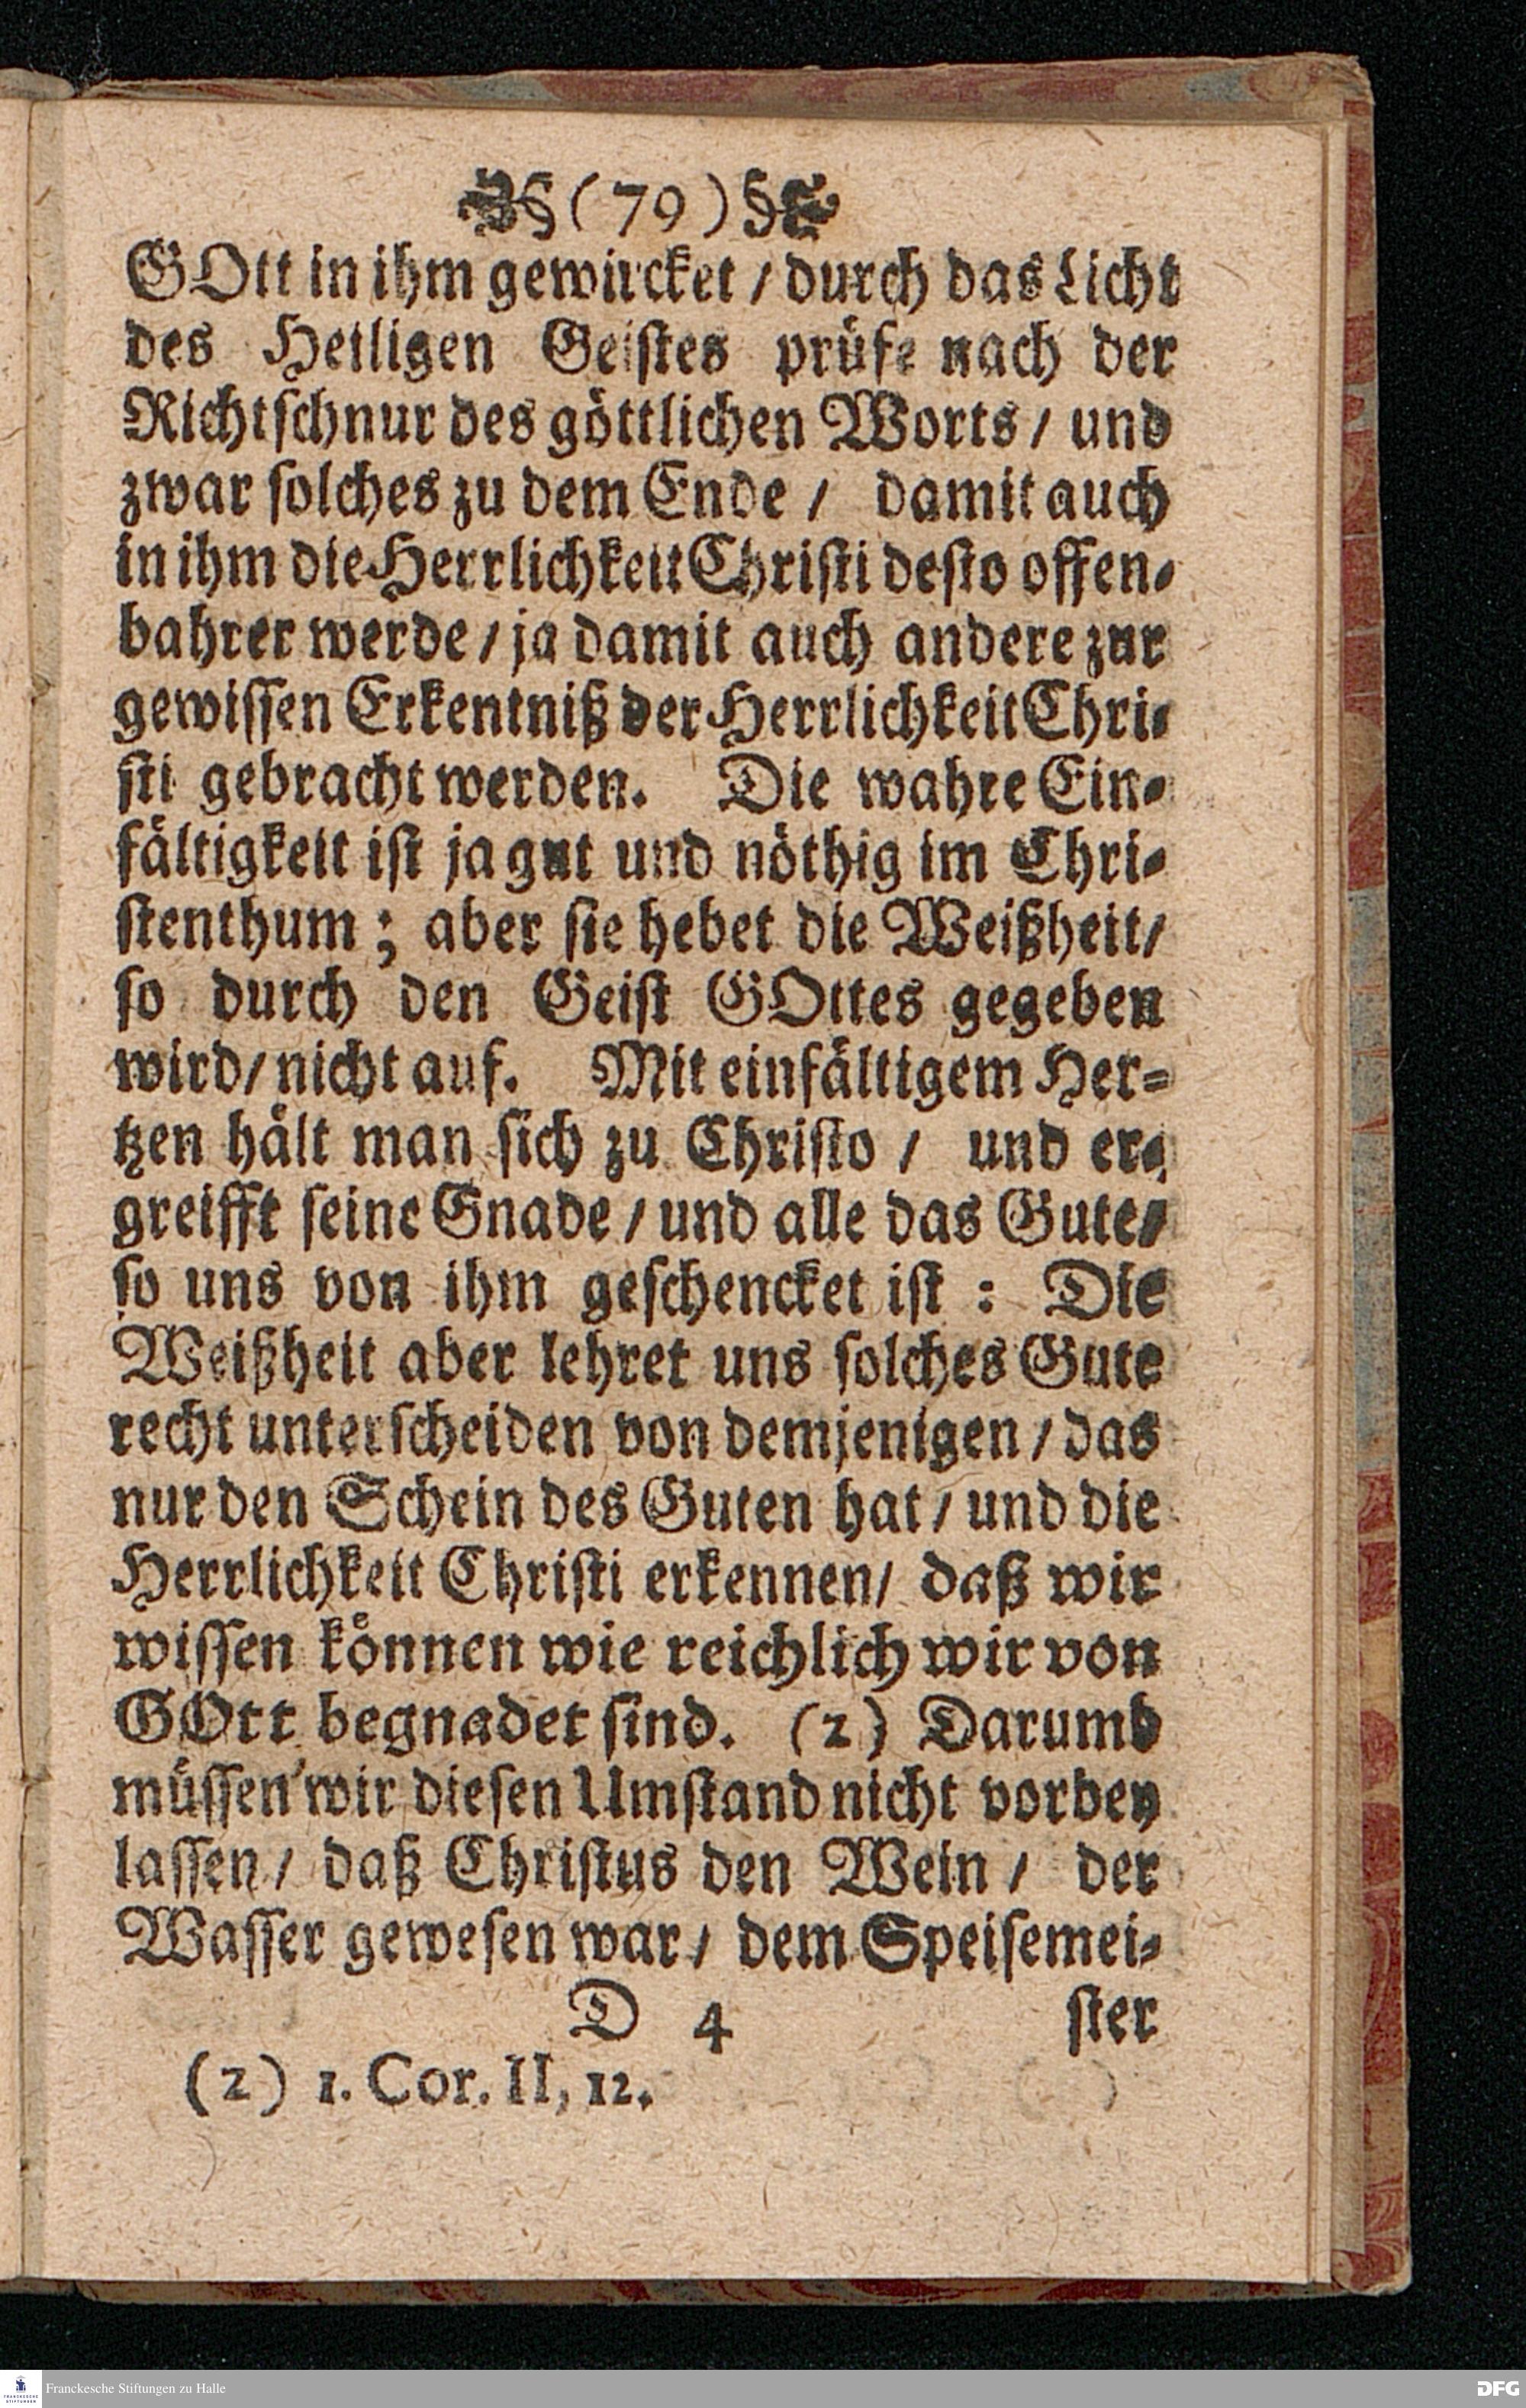 § ( 79 ) §
GOtt in ihm gewircket / durch das Licht
des Heiligen Geistes prüfe nach der
Richtschnur des göttlichen Worts / und
zwar solches zu dem Ende / damit auch
in ihm die Herrlichkeit Christi desto offen-
bahrer werde / ja damit auch andere zur
gewissen Erkentniß der Herrlichkeit Chri-
sti gebracht werden. Die wahre Ein-
fältigkeit ist ja gut und nöthig im Chri-
stenthum ; aber sie hebet die Weißheit /
so durch den Geist GOttes gegeben
wird / nicht auf. Mit einfältigem Her-
tzen hält man sich zu Christo / und er-
greifft seine Gnade / und alle das Gute /
so uns von ihm geschencket ist : Die
Weißheit aber lehret uns solches Gute
recht unterscheiden von demjenigen / das
nur den Schein des Guten hat / und die
Herrlichkeit Christi erkennen / daß wir
wissen können wie reichlich wir von
GOtt begnadet sind. (2) Darumb
müssen wir diesen Umstand nicht vorbey
lassen / daß Christus den Wein / der
Wasser gewesen war / dem Speisemei-
D 4 ster
(2) 1. Cor. II, 12.
Franckesche Stiftungen zu Halle
DFG